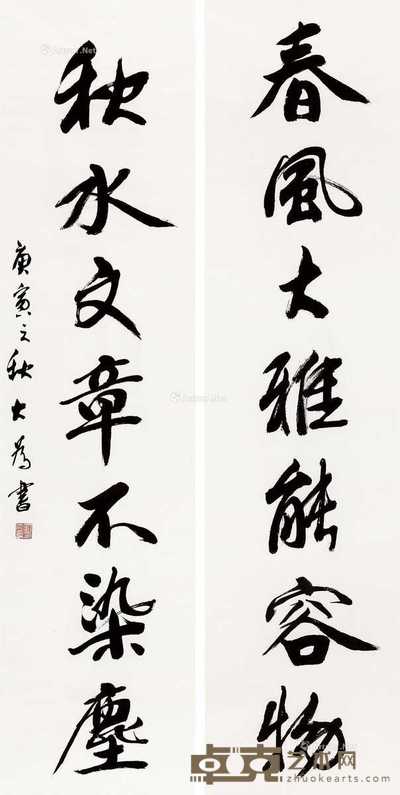 春風大雅能容物
秋水文章不染塵
庚寅之秋大為書
卓克艺术网
www.zhuokearts.com